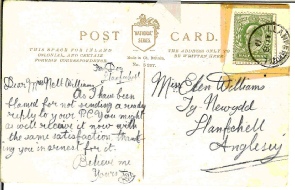 POST CARD.
NATIONAL SERIES
THIS SPACE FOR INLAND,
COLONIAL, AND CERTAIN
FOREIGN CORRESPONDENCE.
THE ADDRESS ONLY TO
BE WRITTEN HERE.
Made in Gt. Britain.
Dear Miss Nell Williams
As I has been
blamed for not sending a ready
reply to your P.C. You might
as well receive it now with
the same satisfaction thank
ing you in earnest for it.
Believe me
Yours
Miss Ellen Williams
Ty Newydd
Llanfechell
Anglesey